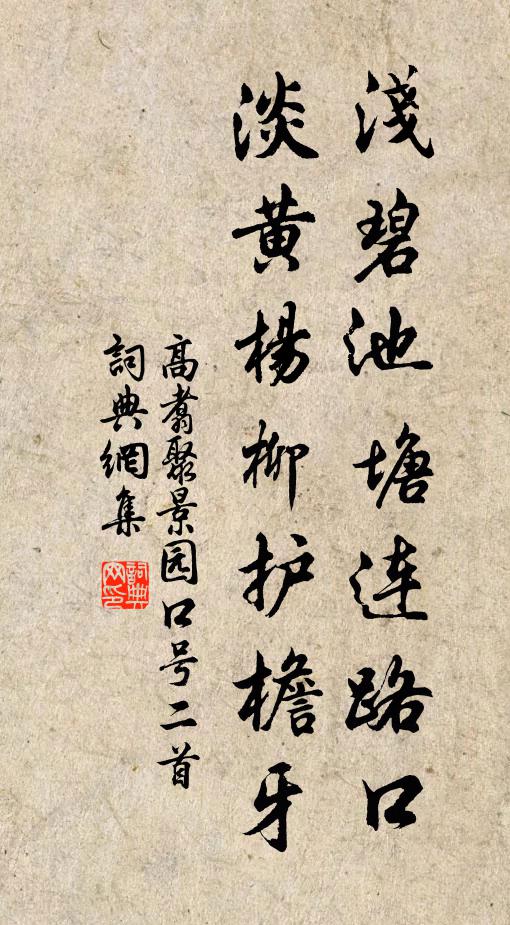 淺碧池塘连路口
淡黄楊柳护檐牙
高翥聚景园口号二首
詞典網集
詞典网印